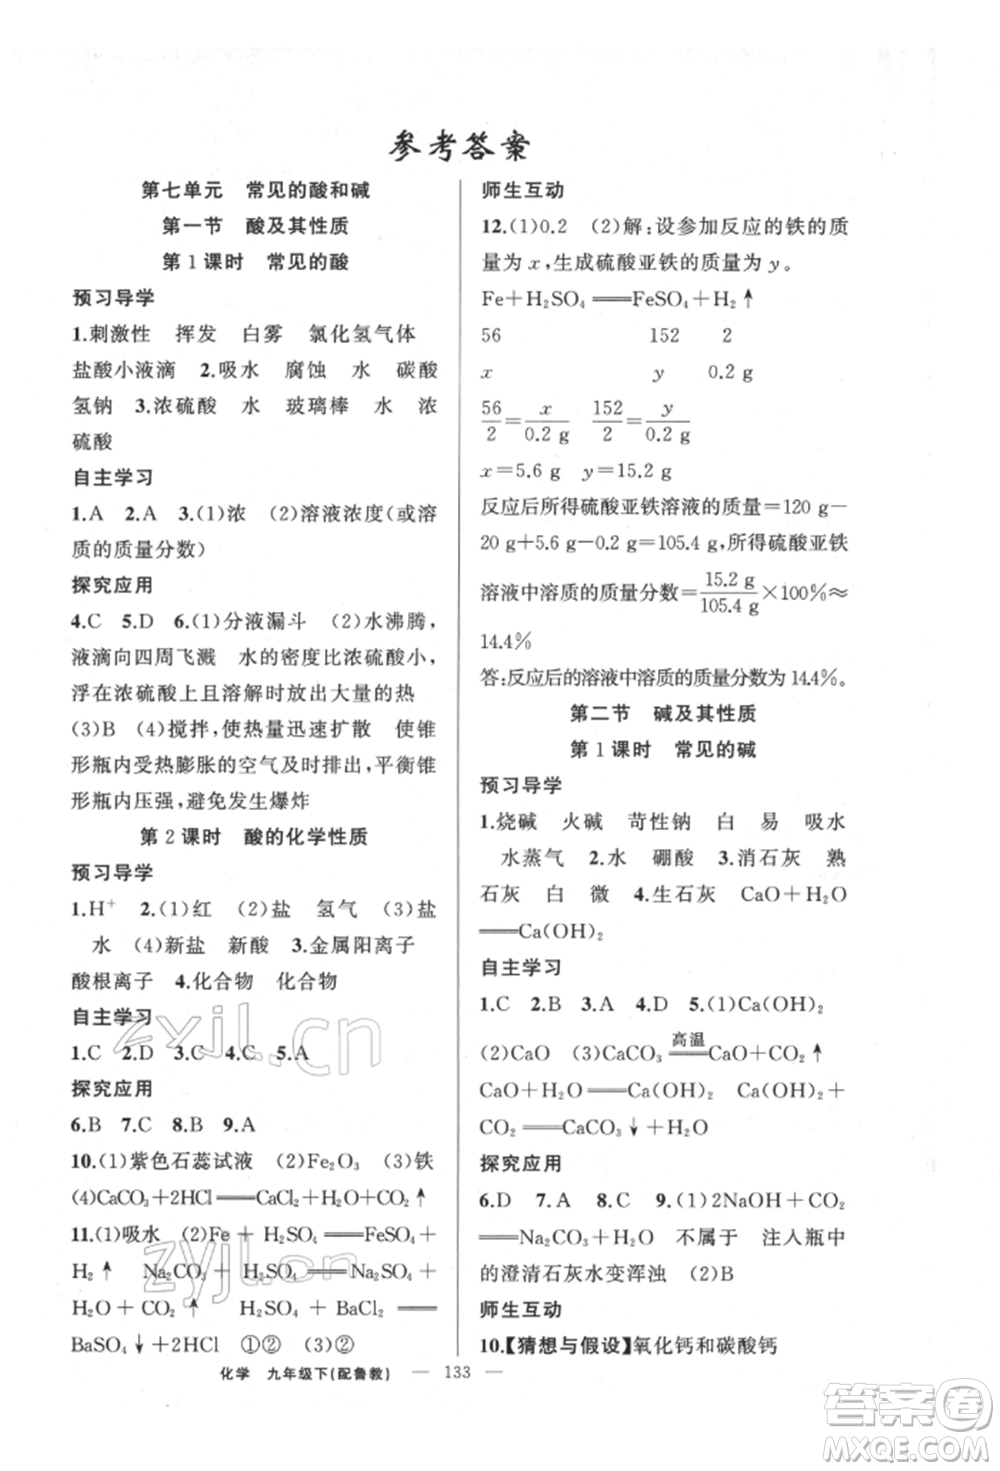 参考答案
第七单元　常见的酸和碱
第一节　酸及其性质
第1课时　常见的酸
预习导学
1.刺激性　挥发　白雾　氯化氢气体
盐酸小液滴　2.吸水　腐蚀　水　碳酸
氢钠　3.浓硫酸　水　玻璃棒　水　浓
硫酸
自主学习
1.A　2.A　3.(1)浓　(2)溶液浓度(或溶
质的质量分数)
探究应用
4.C　5.D　6.(1)分液漏斗　(2)水沸腾,
液滴向四周飞溅　水的密度比浓硫酸小,
浮在浓硫酸上且溶解时放出大量的热
(3)B　(4)搅拌,使热量迅速扩散　使锥
形瓶内受热膨胀的空气及时排出,平衡锥
形瓶内压强,避免发生爆炸
第2课时　酸的化学性质
预习导学
1.H⁺　2.(1)红　(2)盐　氢气　(3)盐
水　(4)新盐　新酸　3.金属阳离子
酸根离子　4.化合物　化合物
自主学习
1.C　2.D　3.C　4.C　5.A
探究应用
6.B　7.C　8.B　9.A
10.(1)紫色石蕊试液　(2)Fe₂O₃　(3)铁
(4)CaCO₃+2HCl══CaCl₂+H₂O+CO₂↑
11.(1)吸水　(2)Fe + H₂SO₄══FeSO₄ +
H₂↑　Na₂CO₃ + H₂SO₄══Na₂SO₄ +
H₂O + CO₂↑　H₂SO₄ + BaCl₂══
BaSO₄↓+2HCl　①②　(3)②
师生互动
12.(1)0.2　(2)解:设参加反应的铁的质
量为 x,生成硫酸亚铁的质量为 y。
Fe+H₂SO₄══FeSO₄+H₂↑
56　152　2
x　y　0.2 g
56/2=x/0.2 g　152/2=y/0.2 g
x=5.6 g　y=15.2 g
反应后所得硫酸亚铁溶液的质量=120 g-
20 g+5.6 g-0.2 g=105.4 g,所得硫酸亚铁
溶液中溶质的质量分数=15.2 g/105.4 g×100%≈
14.4%
答:反应后的溶液中溶质的质量分数为14.4%。
第二节　碱及其性质
第1课时　常见的碱
预习导学
1.烧碱　火碱　苛性钠　白　易　吸水
水蒸气　2.水　硼酸　3.消石灰　熟
石灰　白　微　4.生石灰　CaO+H₂O
══Ca(OH)₂
自主学习
1.C　2.B　3.A　4.D　5.(1)Ca(OH)₂
(2)CaO　(3)CaCO₃═高温═CaO+CO₂↑
CaO+H₂O══Ca(OH)₂　Ca(OH)₂+
CO₂══CaCO₃↓+H₂O
探究应用
6.D　7.A　8.C　9.(1)2NaOH+CO₂
══Na₂CO₃+H₂O　不属于　注入瓶中
的澄清石灰水变浑浊　(2)B
师生互动
10.【猜想与假设】氧化钙和碳酸钙
化学　九年级下(配鲁教)　— 133 —
zyjl.cn
zyjl.cn
答案圈
MXQE.COM